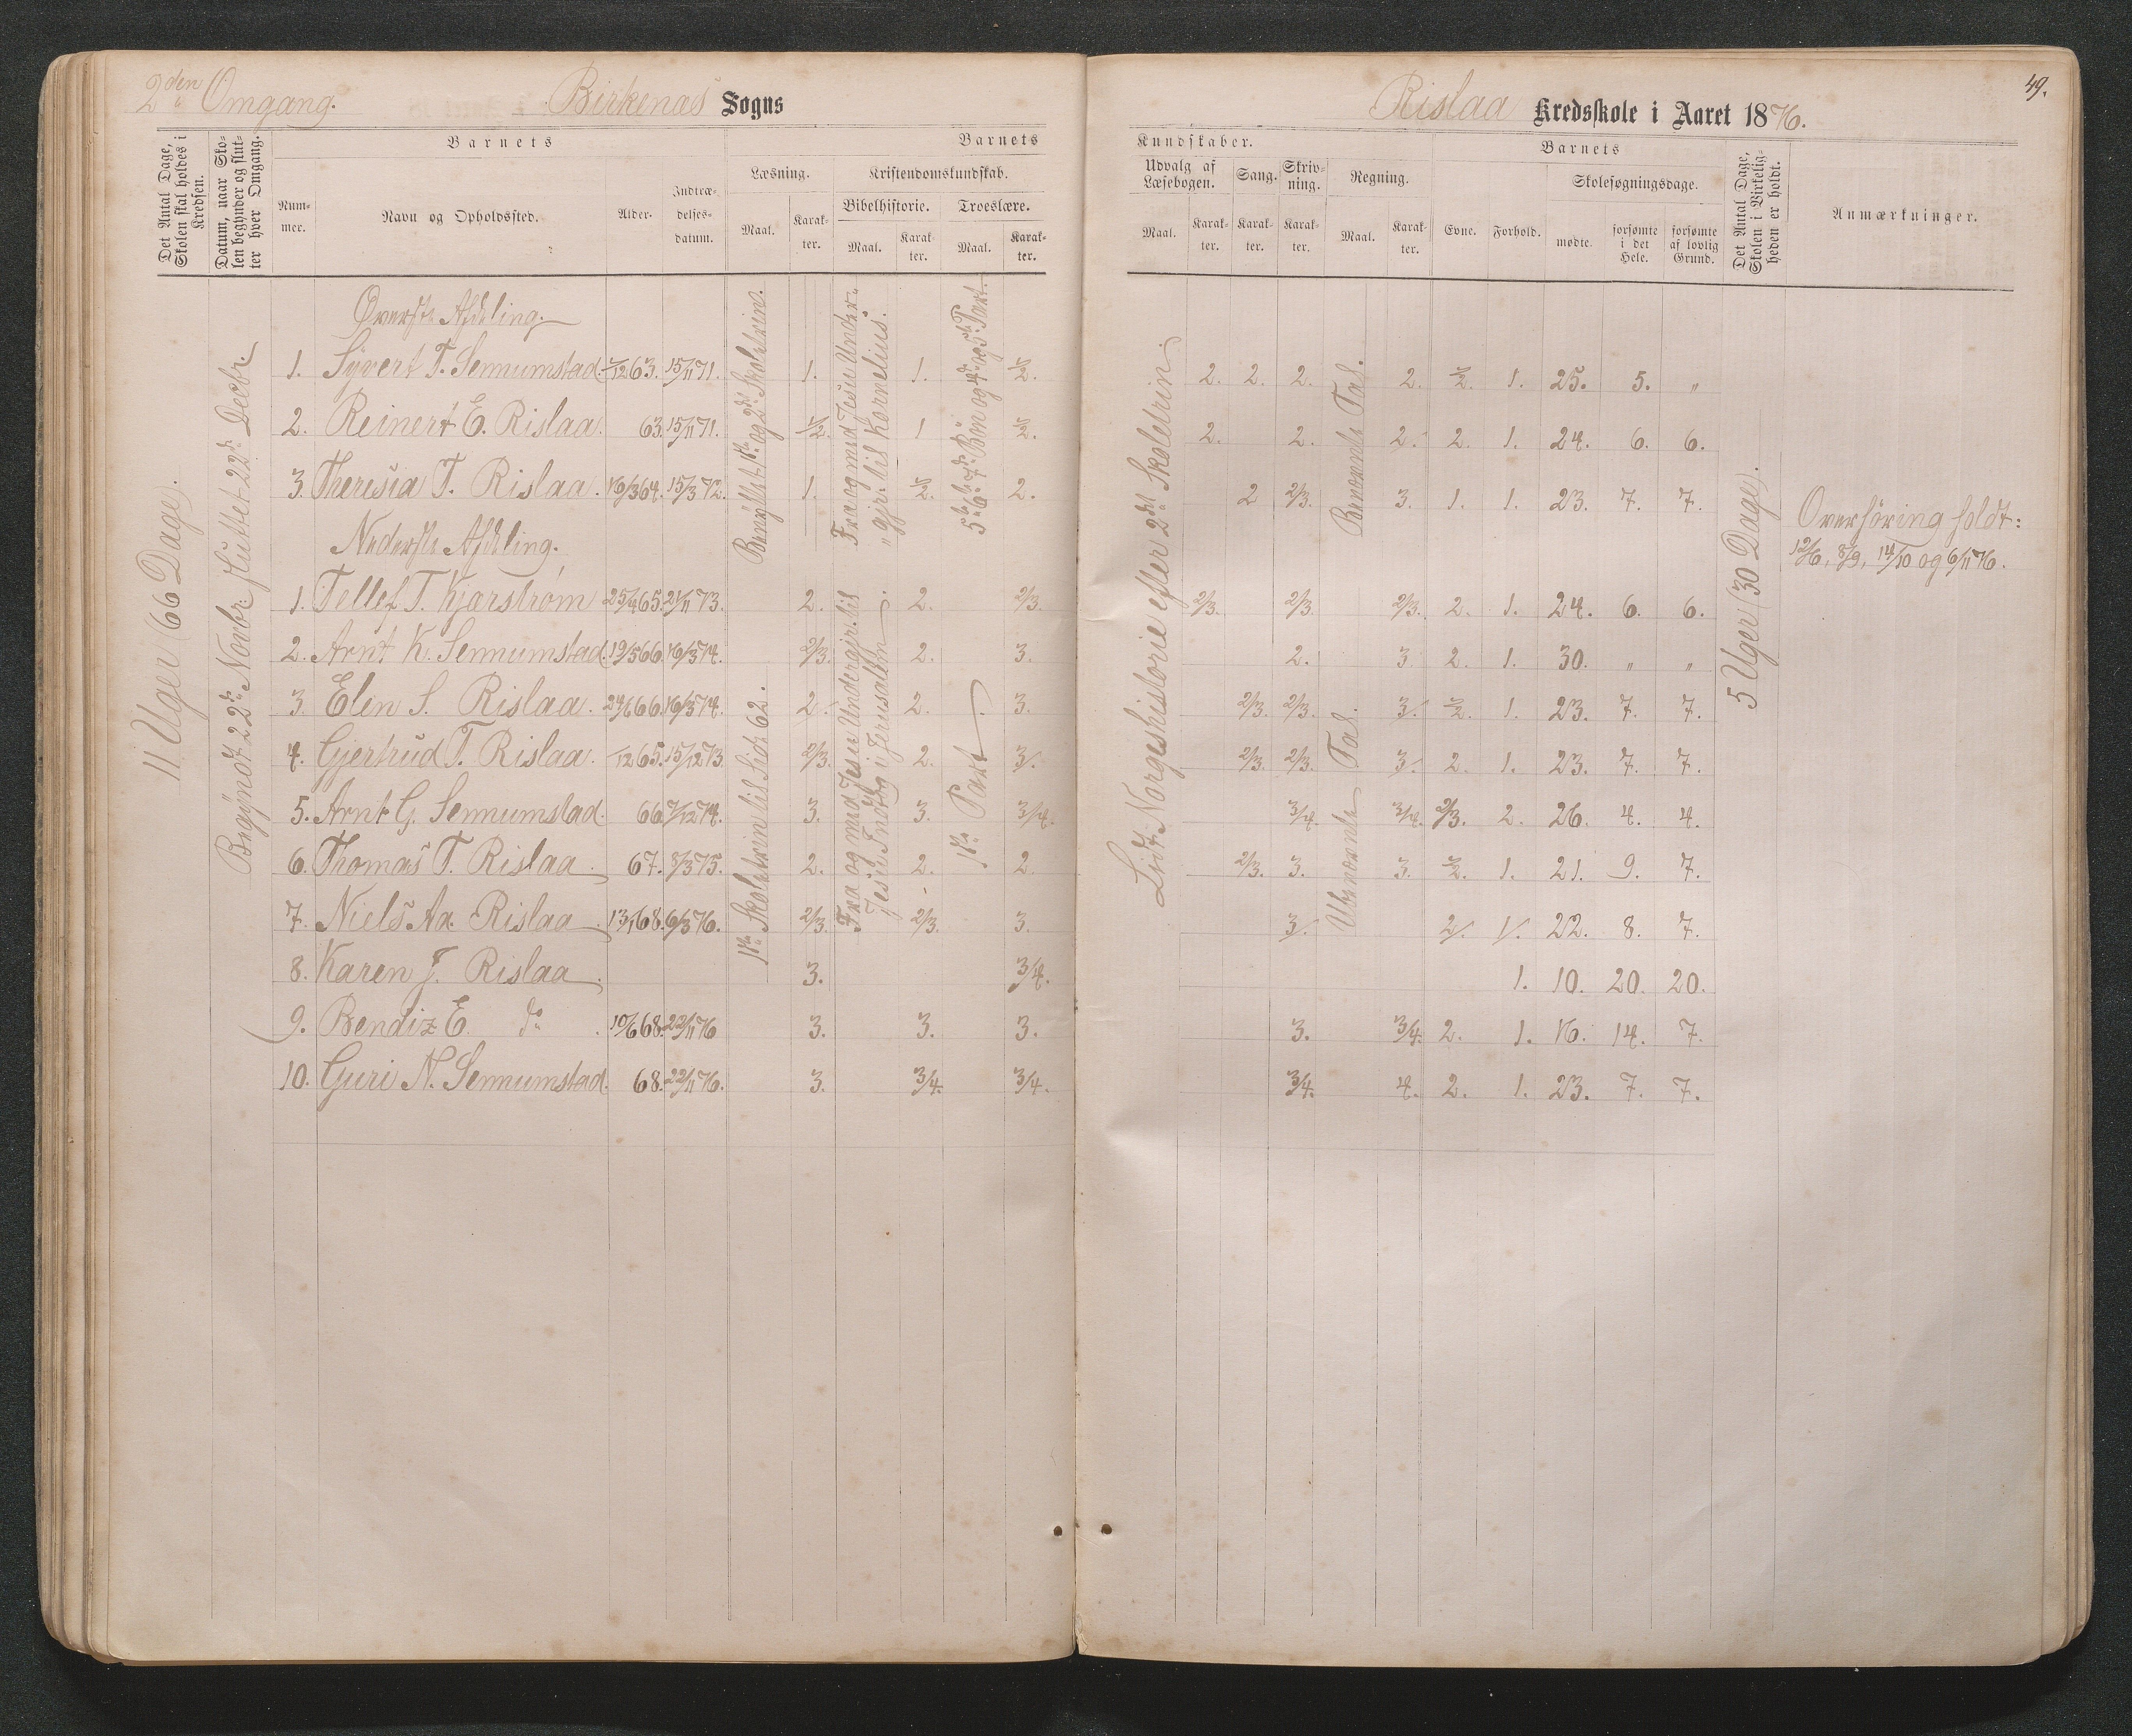 2den Omgang. Birkenæs Sogns
Det Antal Dage, Skolen skal holdes i Kredsen.
Datum, naar Skolen begynder og slutter hver Omgang.
Barnets
Nummer.
Navn og Opholdssted.
Alder.
Indtrædelsesdatum.
Barnets
Læsning.
Maal.
Karakter.
Kristendomskundskab.
Bibelhistorie.
Maal.
Karakter.
Troeslære.
Maal.
Karakter.
11 Uger (66 Dage).
Begyndt 22de Novbr. sluttet 22de Decbr.
Øverste Afdeling.
1. Syvert T. Sennumstad. /12 63. 15/11 71. 1. 1. 1/2.
2. Reinert E. Rislaa. 63. 15/11 71. 1/2. 1 1/2.
3. Theresia T. Rislaa. 16/3 64. 15/3 72. 1. 1/2. 2.
Benyttet 1ste og 2det Skoletrin.
Fra og med Jesu Undergjr. til Kornelius.
5te 6te og 7de Bøn og 4de og 5te Part.
Nederste Afdeling.
1. Tellef T. Kjarstrøm 25/4 65. 21/11 73. 2. 2. 2/3.
2. Arnt K. Sennumstad. 19/5 66. 16/3 74. 2/3. 2. 3.
3. Elen S. Rislaa. 24/6 66. 16/3 74. 2. 2. 3.
4. Gjertrud T. Rislaa. /12 65. 15/12 73. 2/3. 2. 3.
5. Arnt G. Sennumstad. 66. 7/12 74. 3. 3. 3/4.
6. Thomas T. Rislaa 67. 8/3 75. 2. 2. 2.
7. Niels Aa. Rislaa 13/1 68. 6/3 76. 2/3. 2/3. 3.
8. Karen J. Rislaa 3. 3/4.
9. Bendix E. do 10/6 68. 22/11 76 3. 3. 3.
10. Guri N. Sennumstad. 68. 22/11 76. 3. 3/4. 3/4.
1ste Skoletrin til Side 62.
Fra og med Jesu Undergjr. til Jesu Indtog i Jerusalem
1ste Part
49.
Rislaa Kredsskole i Aaret 1876.
Kundskaber.
Udvalg af Læsebogen.
Maal.
Karakter.
Sang.
Karakter.
Skrivning.
Karakter.
Regning.
Maal.
Karakter.
Barnets
Evne.
Forhold.
Skolesøgningsdage.
mødte.
forsømte i det Hele.
forsømte af lovlig Grund.
Det Antal Dage, Skolen i Virkeligheden er holdt.
Anmærkninger.
Lidt Norgeshistorie efter 2det Skoletrin.
Benævnte Tal.
2. 2. 2. 2. 1/2. 1. 25. 5. "
2. 2. 2. 2. 1. 24. 6. 6.
2 2/3. 3. 1. 1. 23. 7. 7.
Ubenævnte Tal.
2/3. 2/3. 2/3. 2. 1. 24. 6. 6.
2. 3 2. 1. 30. " "
2/3. 2/3. 3. 1/2. 1. 23. 7. 7.
2/3. 2/3. 3. 2. 1. 23. 7. 7.
3/4. 3/4. 2/3. 2. 26. 4. 4.
2/3. 3. 3. 1/2. 1. 21. 9. 7.
3. 2. 1. 22. 8. 7.
1. 10. 20. 20.
3. 3/4. 2. 1. 16. 14. 7.
3/4. 4. 2. 1. 23. 7. 7.
5 Uger (30 Dage).
Overhöring holdt:
12/6, 8/9, 14/10 og 6/11 76.